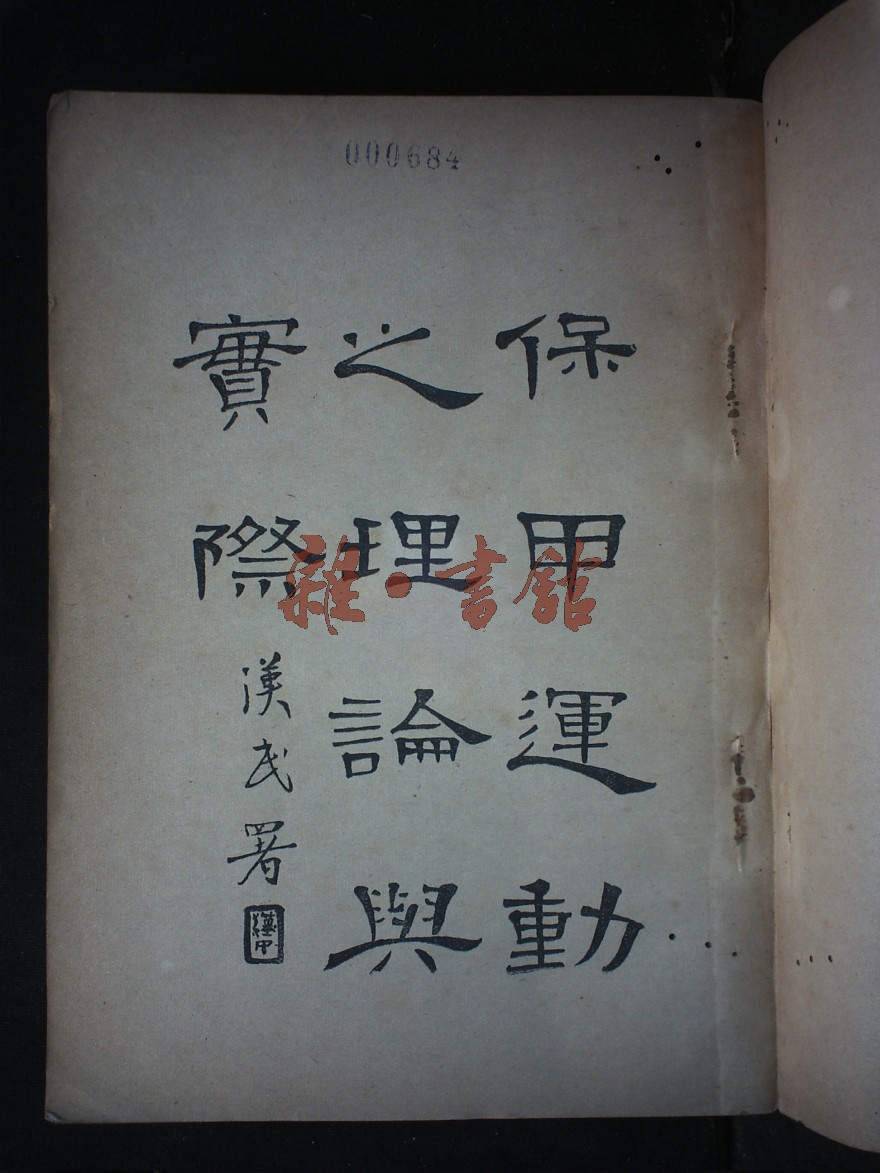 000684
保甲運動
之理論與
實際
漢民署
雜·書館